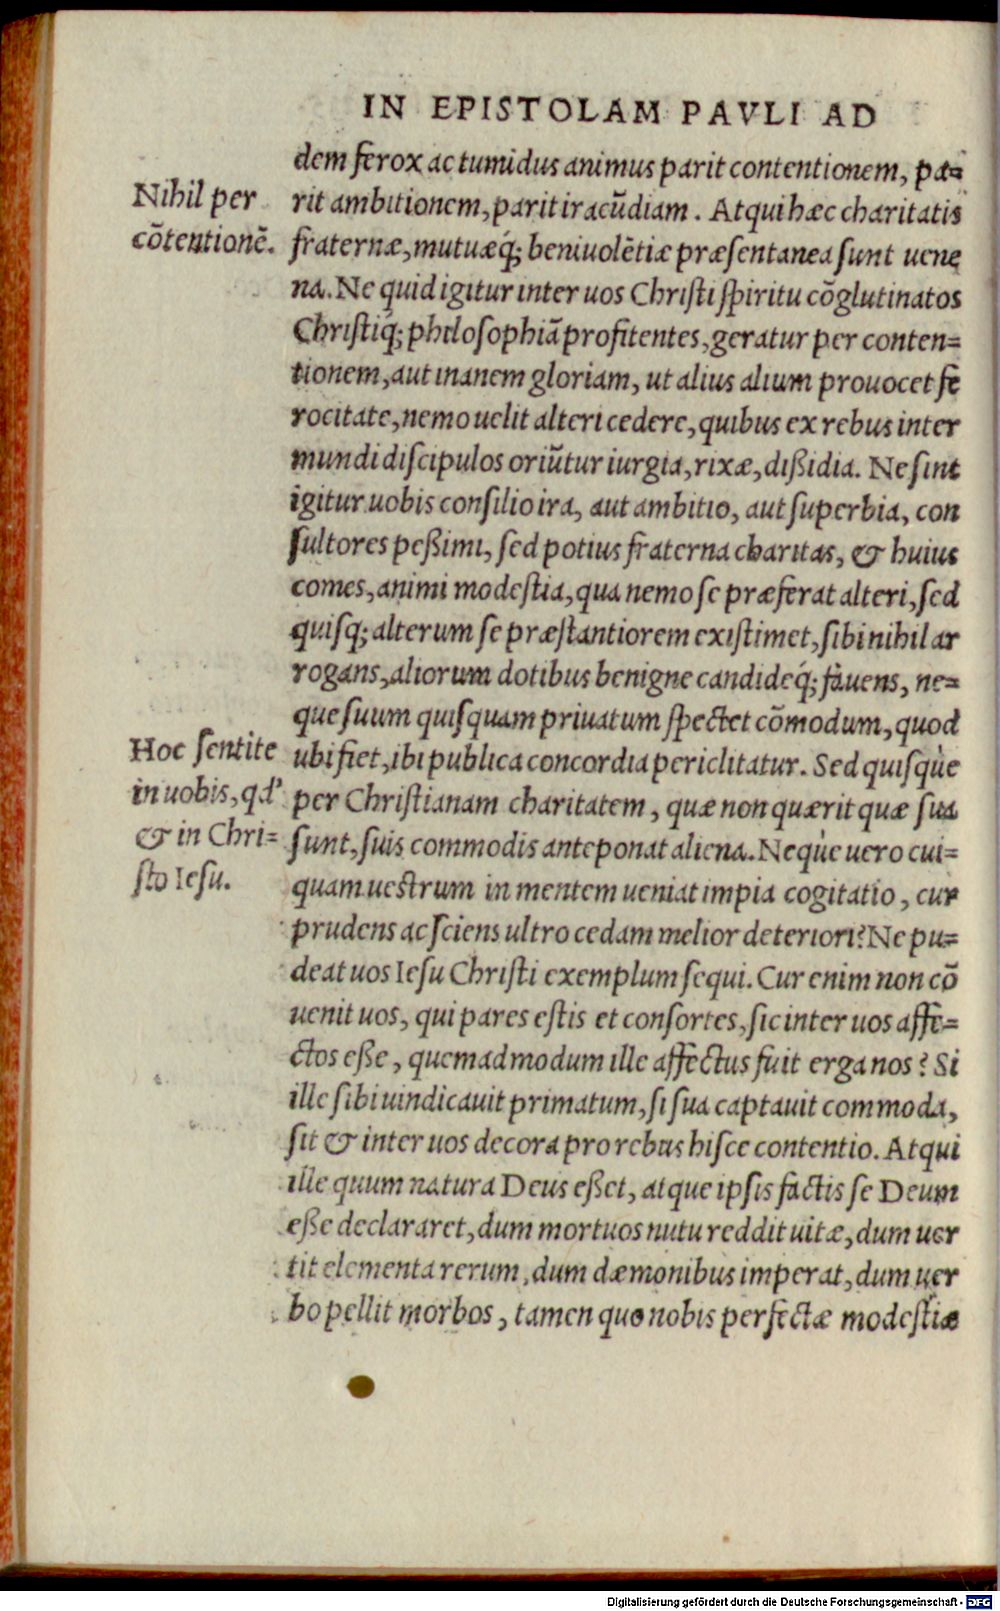 IN EPISTOLAM PAVLI AD
dem ferox ac tumidus animus parit contentionem, pa=
rit ambitionem, parit iracũdiam. Atqui hæc charitatis
fraternæ, mutuæq́; beniuolẽtiæ præsentanea sunt uene
na. Ne quid igitur inter uos Christi spiritu cõglutinatos
Christiq́; philosophiã profitentes, geratur per conten=
tionem, aut inanem gloriam, ut alius alium prouocet fe
rocitate, nemo uelit alteri cedere, quibus ex rebus inter
mundi discipulos oriũtur iurgia, rixæ, dißidia. Ne sint
igitur uobis consilio ira, aut ambitio, aut superbia, con
sultores peßimi, sed potius fraterna charitas, & huius
comes, animi modestia, qua nemo se præferat alteri, sed
quisq; alterum se præstantiorem existimet, sibi nihil ar
rogans, aliorum dotibus benigne candideq́; fauens, ne=
que suum quisquam priuatum spectet cõmodum, quod
ubi fiet, ibi publica concordia periclitatur. Sed quisq̀ue
per Christianam charitatem, quæ non quærit quæ sua
sunt, suis commodis anteponat aliena. Neq̀ue uero cui=
quam uestrum in mentem ueniat impia cogitatio, cur
prudens ac sciens ultro cedam melior deteriori? Ne pu=
deat uos Iesu Christi exemplum sequi. Cur enim non cõ
uenit uos, qui pares estis et consortes, sic inter uos affe=
ctos eße, quemadmodum ille affectus fuit erga nos? Si
ille sibi uindicauit primatum, si sua captauit commoda,
sit & inter uos decora pro rebus hisce contentio. Atqui
ille quum natura Deus eßet, atque ipsis factis se Deum
eße declararet, dum mortuos nutu reddit uitæ, dum uer
tit elementa rerum, dum dæmonibus imperat, dum uer
bo pellit morbos, tamen quo nobis perfectæ modestiæ
Nihil per
cõtentionẽ.
Hoc sentite
in uobis, qd'
& in Chri=
sto Iesu.
Digitalisierung gefördert durch die Deutsche Forschungsgemeinschaft - DFG